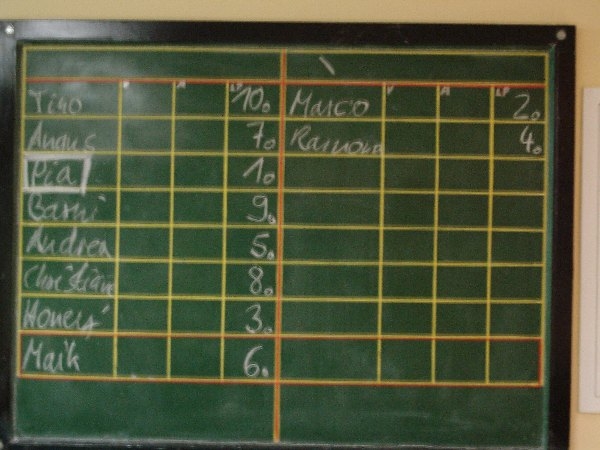 V A LP V A LP
Tino 10. Marco 2.
Angus 7. Ramona 4.
Pia 1.
Barni 9.
Andrea 5.
Christian 8.
3.
Maik 6.